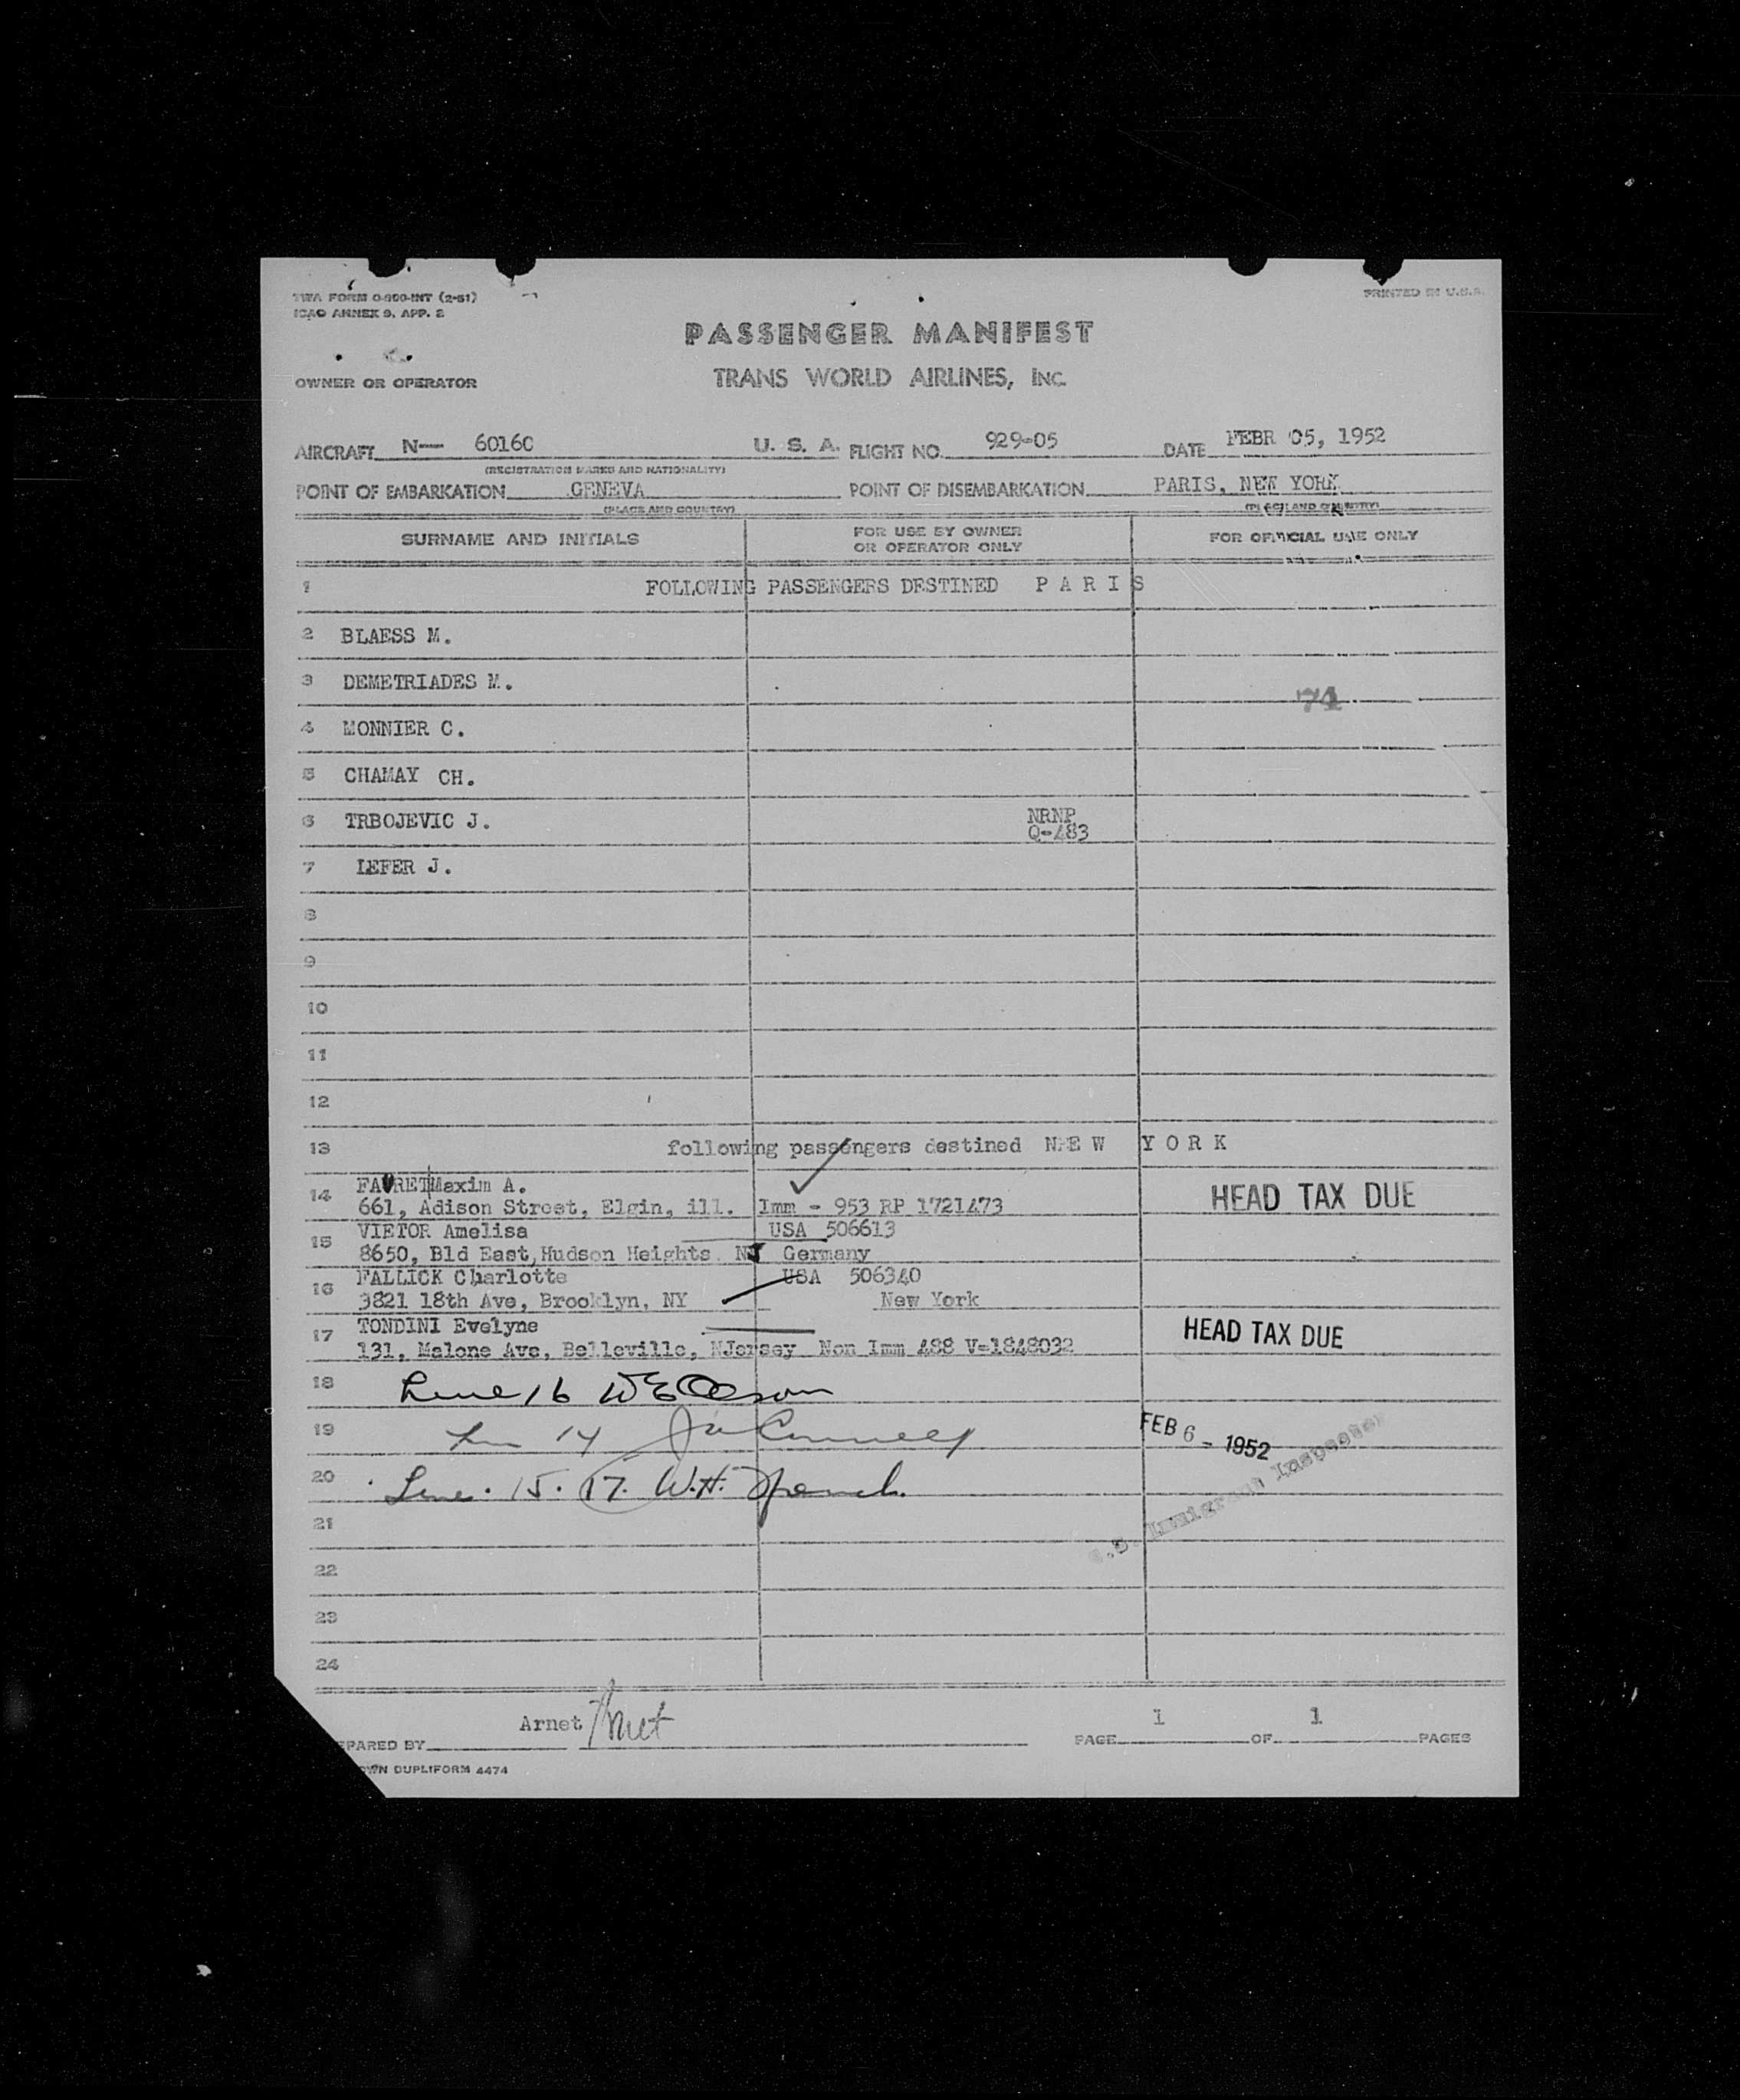 TWA FORM O-900-INT (2-51)
ICAO ANNEX 9, APP. 2
PRINTED IN U.S.A.
PASSENGER MANIFEST
OWNER OR OPERATOR
TRANS WORLD AIRLINES, INC.
AIRCRAFT N— 60160 U. S. A. FLIGHT NO. 929-05 DATE FEBR 05, 1952
(REGISTRATION MARKS AND NATIONALITY)
POINT OF EMBARKATION GENEVA POINT OF DISEMBARKATION PARIS, NEW YORK
(PLACE AND COUNTRY) (PLACE AND COUNTRY)
SURNAME AND INITIALS FOR USE BY OWNER OR OPERATOR ONLY FOR OFFICIAL USE ONLY
1 FOLLOWING PASSENGERS DESTINED P A R I S
2 BLAESS M.
3 DEMETRIADES M.
74
4 MONNIER C.
5 CHAMAY CH.
6 TRBOJEVIC J. NRNP
Q-483
7 LEFER J.
8
9
10
11
12
13 following passengers destined N E W Y O R K
14 FAVRET Maxim A.
661, Adison Street, Elgin, ill. Imm - 953 RP 1721473 HEAD TAX DUE
15 VIETOR Amelisa USA 506613
8650, Bld East, Hudson Heights NJ Germany
16 FALLICK Charlotte USA 506340
3821 18th Ave, Brooklyn, NY New York
17 TONDINI Evelyne HEAD TAX DUE
131, Malone Ave, Belleville, NJersey Non Imm 488 V-1848032
18 Line 16
19 14
FEB 6 - 1952
20 Line 15. 17. W.H.
U.S. Immigrant Inspector
21
22
23
24
Arnet Arnet
PREPARED BY PAGE 1 OF 1 PAGES
OWN DUPLIFORM 4474